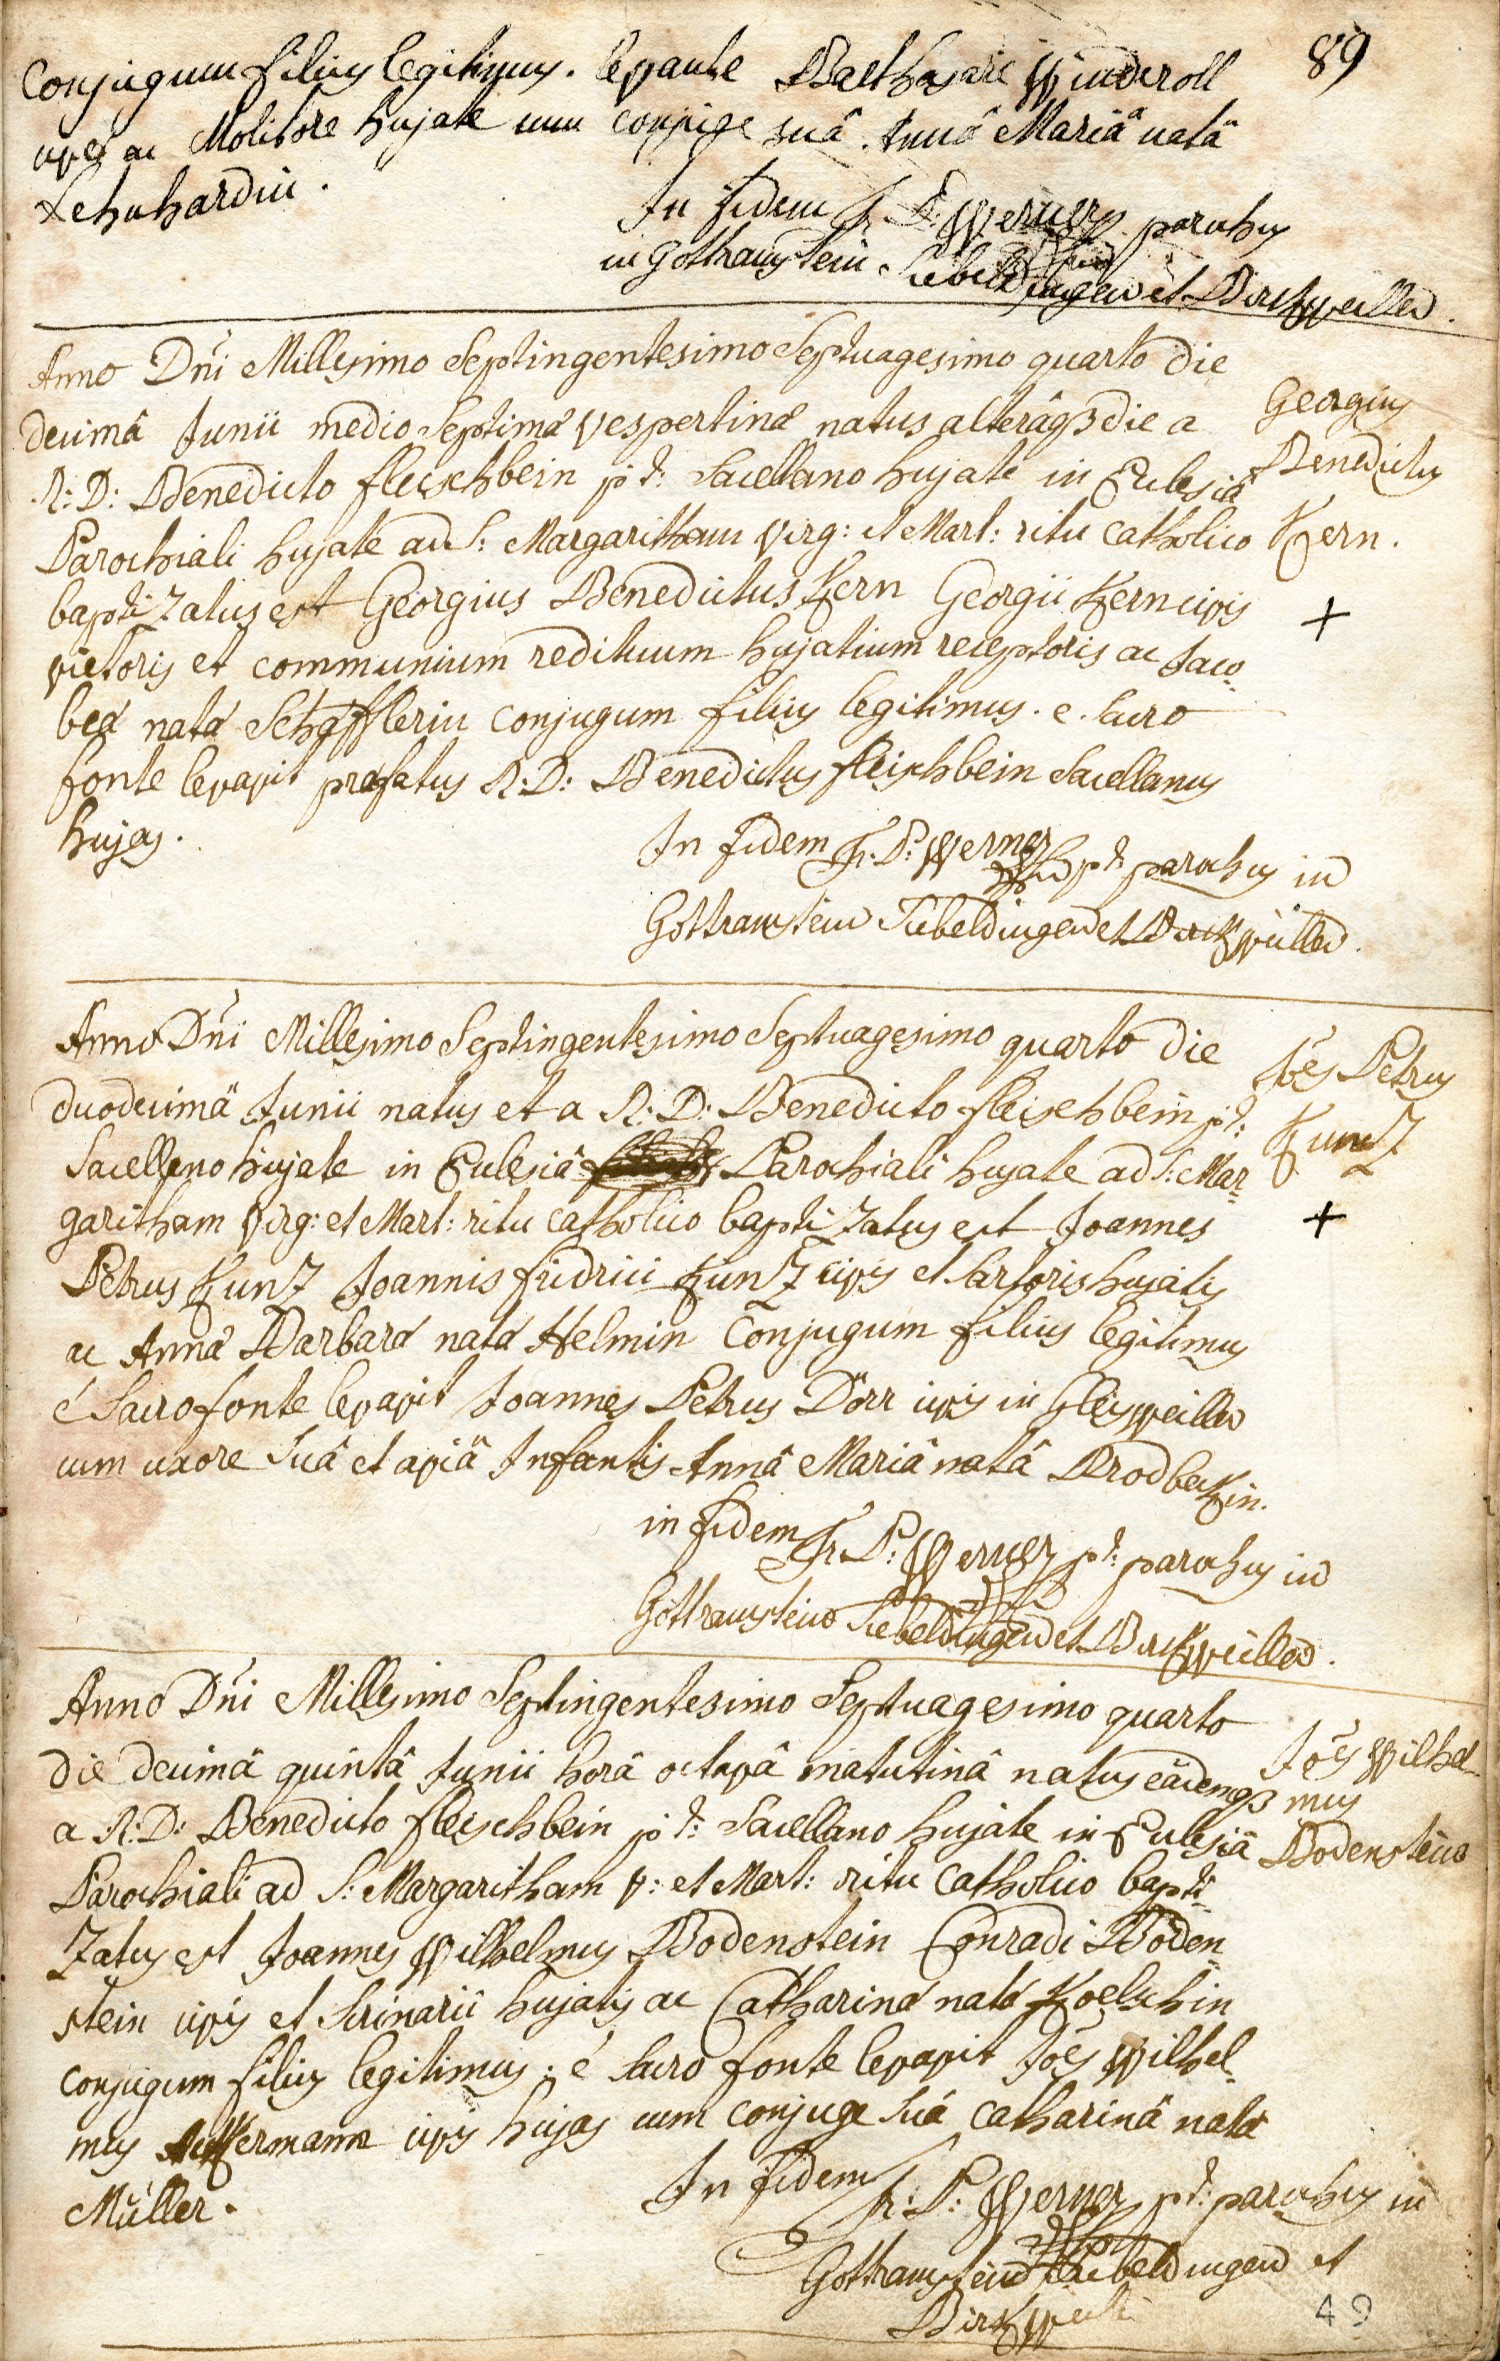 89
Conjugum filius legitimus. levante Balthasare Winderoll
cive ac Molitore hujate cum conjuge suâ Annâ Mariâ natâ
Lehnhardin.
In fidem Fr. P. Werner parochus
in Gothramstein Siebeldingen et Birckweiller.
Anno Dñi Millesimo Septingentesimo Septuagesimo quarto die
decimâ Junii medio Septimæ vespertinæ natus alterâq3 die a
R: D: Benedicto fleischbein p:t: Sacellano hujate in Ecclesiâ
Parochiali hujate ad S: Margaritham Virg: et Mart: ritu Catholico
baptizatus est Georgius Benedictus Kern Georgii Kern civis
vietoris et communium redituum hujatium receptoris ac Jaco-
beæ natæ Schæfflerin Conjugum filius legitimus. e. sacro
fonte levavit præfatus R: D: Benedictus fleischbein Sacellanus
hujas.
Georgius
Benedictus
Kern.
+
In fidem Fr: P: Werner p:t: parochus in
Gothramstein Siebeldingen et Birckweiller.
Anno Dñi Millesimo Septingentesimo Septuagesimo quarto die
duodecimâ Junii natus et a R: D: Benedicto fleischbein p:t:
Sacellano hujate in Ecclesiâ Parochiali hujate ad S: Mar-
garitham Virg: et Mart: ritu Catholico baptizatus est Joannes
Petrus Kunz Joannis fridrici Kunz civis et Sartoris hujatis
ac Annæ Barbaræ natæ Helmin Conjugum filius legitimus
é Sacro fonte levavit Joannes Petrus Dörr civis in fleisweiller
cum uxore Suâ et aviâ Infantis Annâ Mariâ natâ Brodbeckin.
Jo͠es Petrus
Kunz
+
in fidem Fr. P: Werner p:t: parochus in
Gothramstein Siebeldingen et Birckweiller.
Anno Dñi Millesimo Septingentesimo Septuagesimo quarto
die decimâ quintâ Junii horâ octavâ matutinâ natus eâdemq3
a R: D: Benedicto fleischbein p:t: Sacellano hujate in Ecclesiâ
Parochiali ad S: Margaritham V: et Mart: ritu Catholico bapti-
zatus est Joannes Wilhelmus Bodenstein Conradi Boden
stein civis et Scrinarii hujatis ac Catharinæ natæ Koelschin
conjugum filius legitimus; é Sacro fonte levavit Jo͠es Wilhel-
mus Ackermann civis hujas cum conjuge Suâ Catharinâ natâ
Müller.
Jo͠es Wilhel-
mus
Bodenstein
In fidem Fr: P: Werner p:t: parochus in
Gothramstein Siebeldingen et
Birckweiller
49